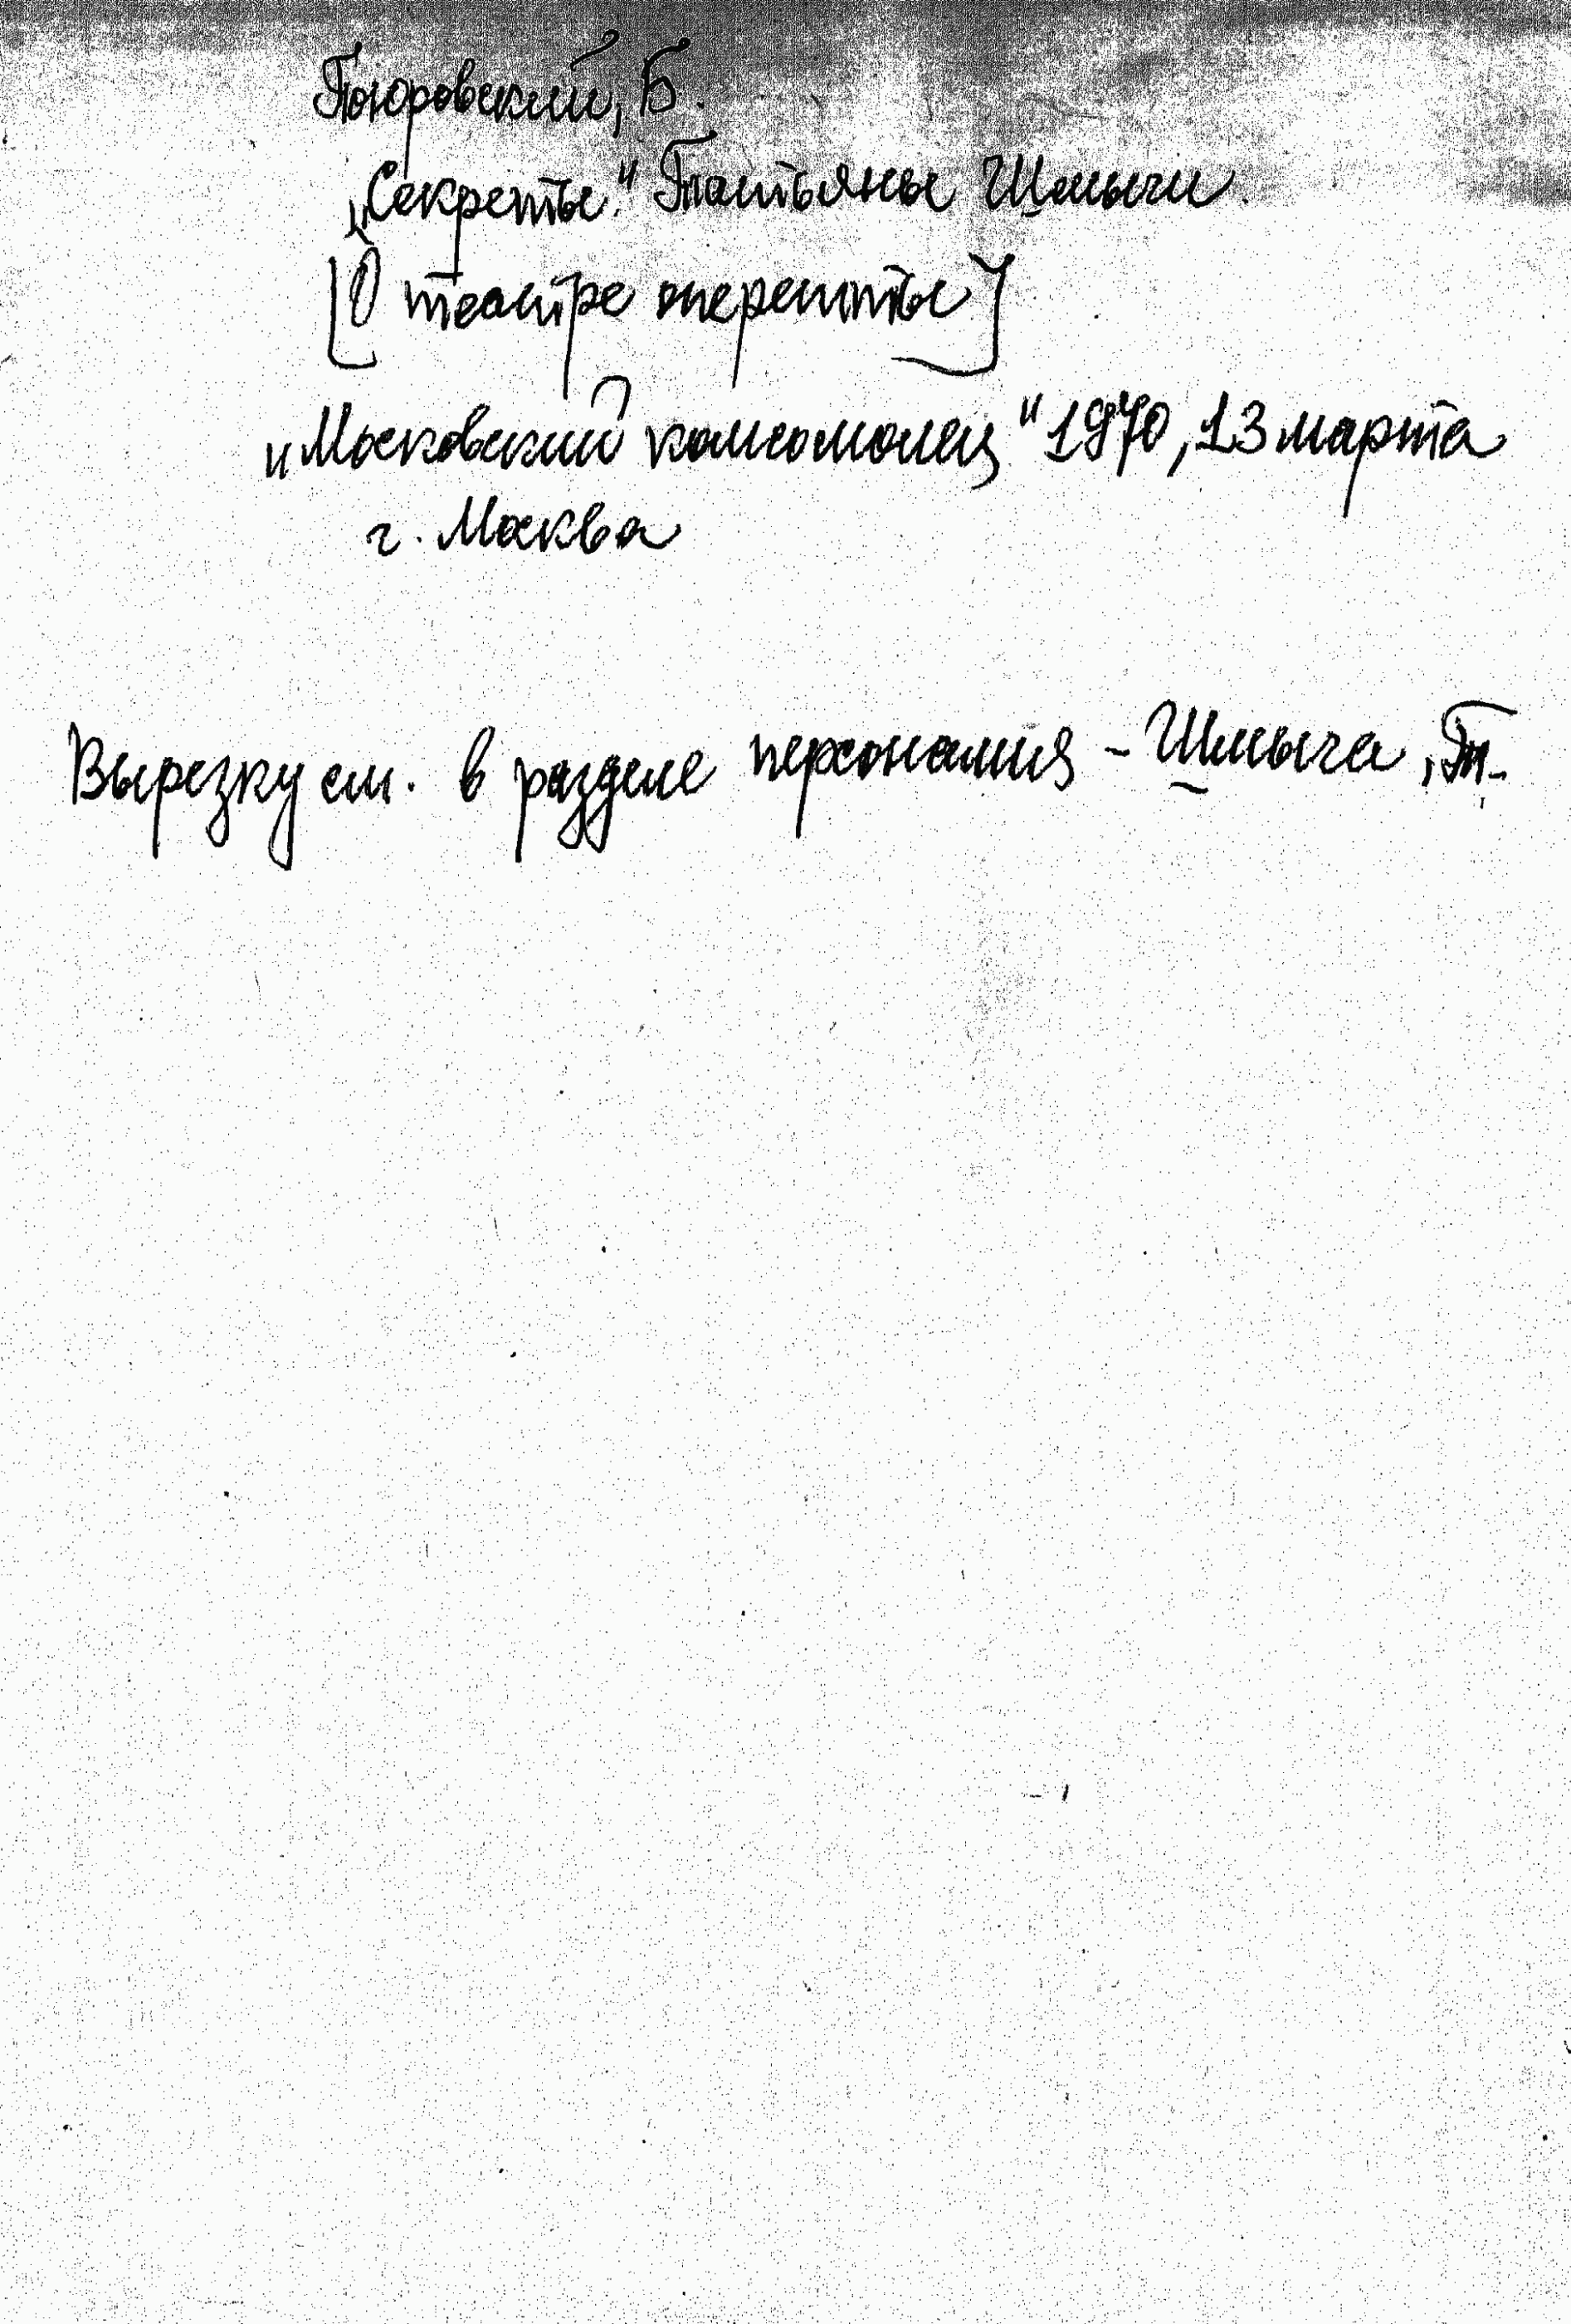 Поюровский, Б.
„Секреты" Татьяны Шмыги.
[О театре оперетты]
„Московский комсомолец" 1970, 13 марта
г. Москва
Вырезку см. в разделе персоналия - Шмыга, Т.